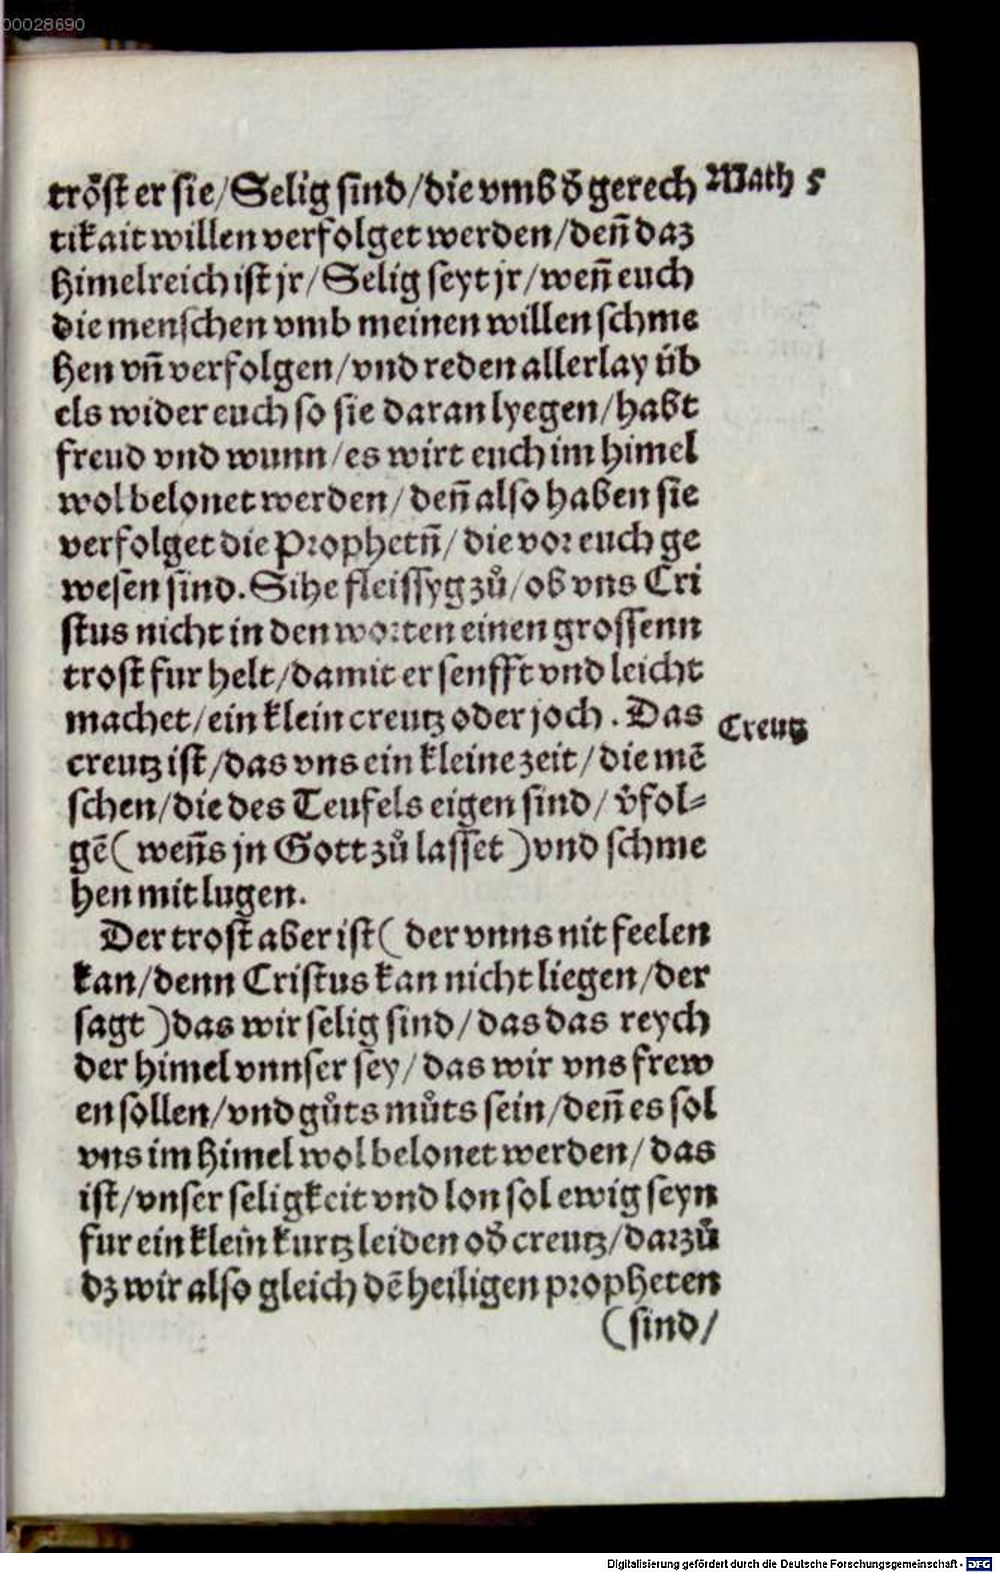 00028690
trőst er sie/Selig sind/die vmb d̕ gerech Math 5
tikait willen verfolget werden/deñ daz
himelreich ist jr/Selig seyt jr/weñ euch
die menschen vmb meinen willen schme
hen vñ verfolgen/vnd reden allerlay üb
els wider euch so sie daran lyegen/habt
freud vnd wunn/es wirt euch im himel
wol belonet werden/deñ also haben sie
verfolget die Prophetñ/die vor euch ge
wesen sind. Sihe fleissyg zů/ob vns Cri
stus nicht in den worten einen grossenn
trost fur helt/damit er senfft vnd leicht
machet/ein klein creutz oder joch. Das Creutz
creutz ist/das vns ein kleine zeit/die mē
schen/die des Teufels eigen sind/v̕fol⸗
gē(weñs jn Gott zů lasset)vnd schme
hen mit lugen.
Der trost aber ist(der vnns nit feelen
kan/denn Cristus kan nicht liegen/der
sagt)das wir selig sind/das das reych
der himel vnnser sey/das wir vns frew
en sollen/vnd gůts můts sein/deñ es sol
vns im himel wol belonet werden/das
ist/vnser seligkeit vnd lon sol ewig seyn
fur ein klein kurtz leiden od̕ creutz/darzů
dz wir also gleich dē heiligen propheten
(sind/
Digitalisierung gefördert durch die Deutsche Forschungsgemeinschaft - DFG